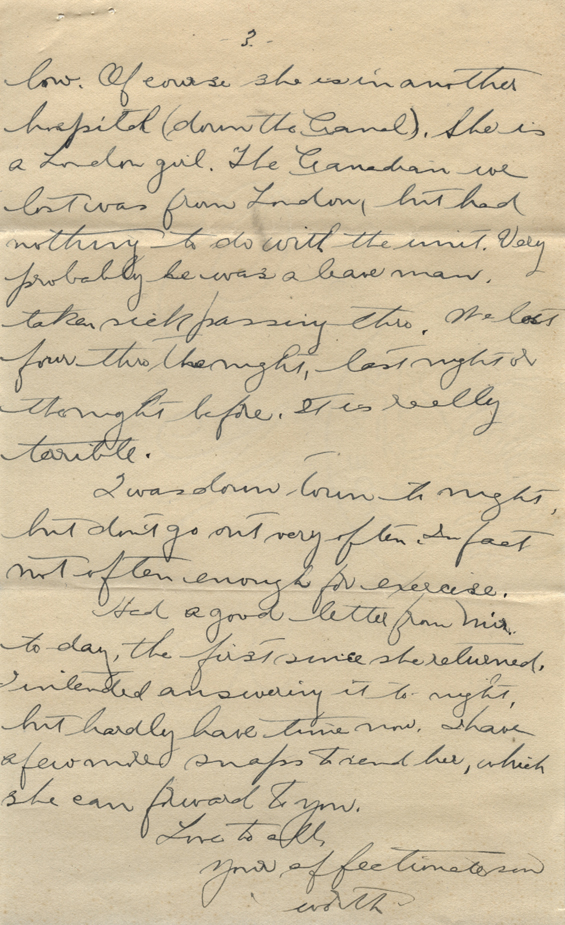 3.
low. Of course she is in another
hospital (down the Canal). She is
a London girl. The Canadian we
lost was from London, but had
nothing to do with the unit. Very
probably he was a leave man,
taken sick passing thro. We lost
four thro the night, last night or
the night before. It is really
terrible.
I was down town to night,
but don't go out very often. In fact
not often enough for exercise.
Had a good letter from Mir.
to day, the first since she returned.
I intended answering it to night,
but hardly have time now. I have
a few more snaps to send her, which
she can forward to you.
Love to all,
Your affectionate son
Worth